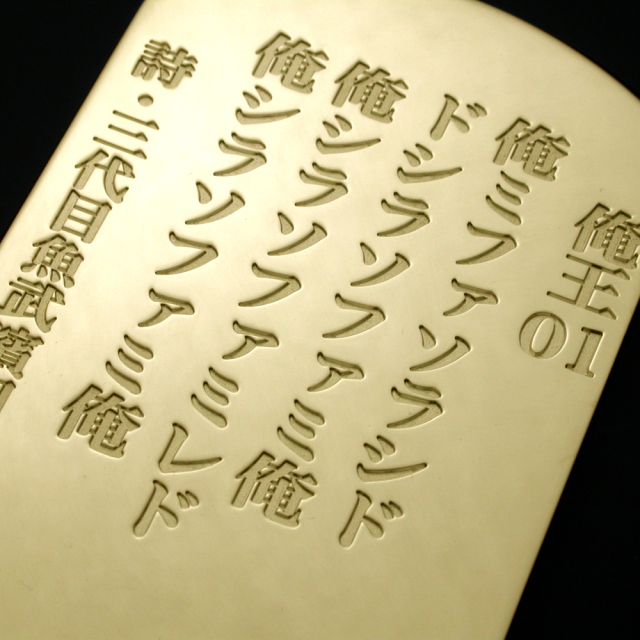 俺王01
俺ミファソラシド
ドシラソファミ俺
俺シラソファミレド
俺シラソファミ俺
詩・三代目魚武濱